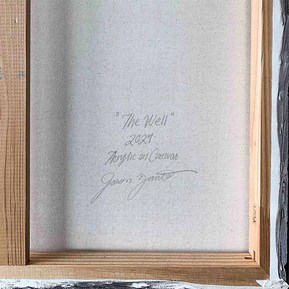 "The Well"
2021
Acrylic on Canvas
Jason